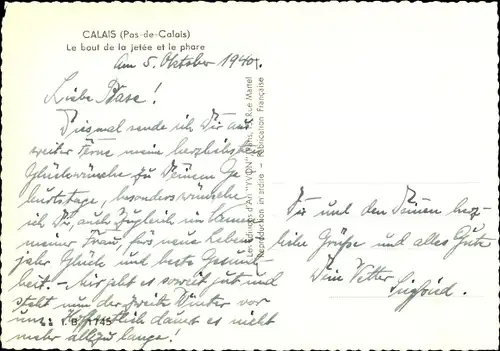 CALAIS (Pas-de-Calais)
Le bout de la jetée et le phare
Am 5. Oktober 1940.
Liebe Base!
Diesmal sende ich Dir aus
weiter Ferne meine herzlichsten
Glückwünsche zu Deinem Ge-
burtstage, besonders wünsche
ich Dir, auch zugleich im Namen
meiner Frau, fürs neue Lebens-
jahr Glück und beste Gesund-
heit. - hier geht es soweit gut und
steht nun der zweite Winter vor
uns. Hoffentlich dauert es nicht
mehr allzu lange!
Dir und den Deinen herz-
liche Grüße und alles Gute
Dein Vetter
Siegfried.
Les Editions d'Art "YVON", Paris, Rue Martel
Reproduction interdite - Fabrication Française
I. B. 1745